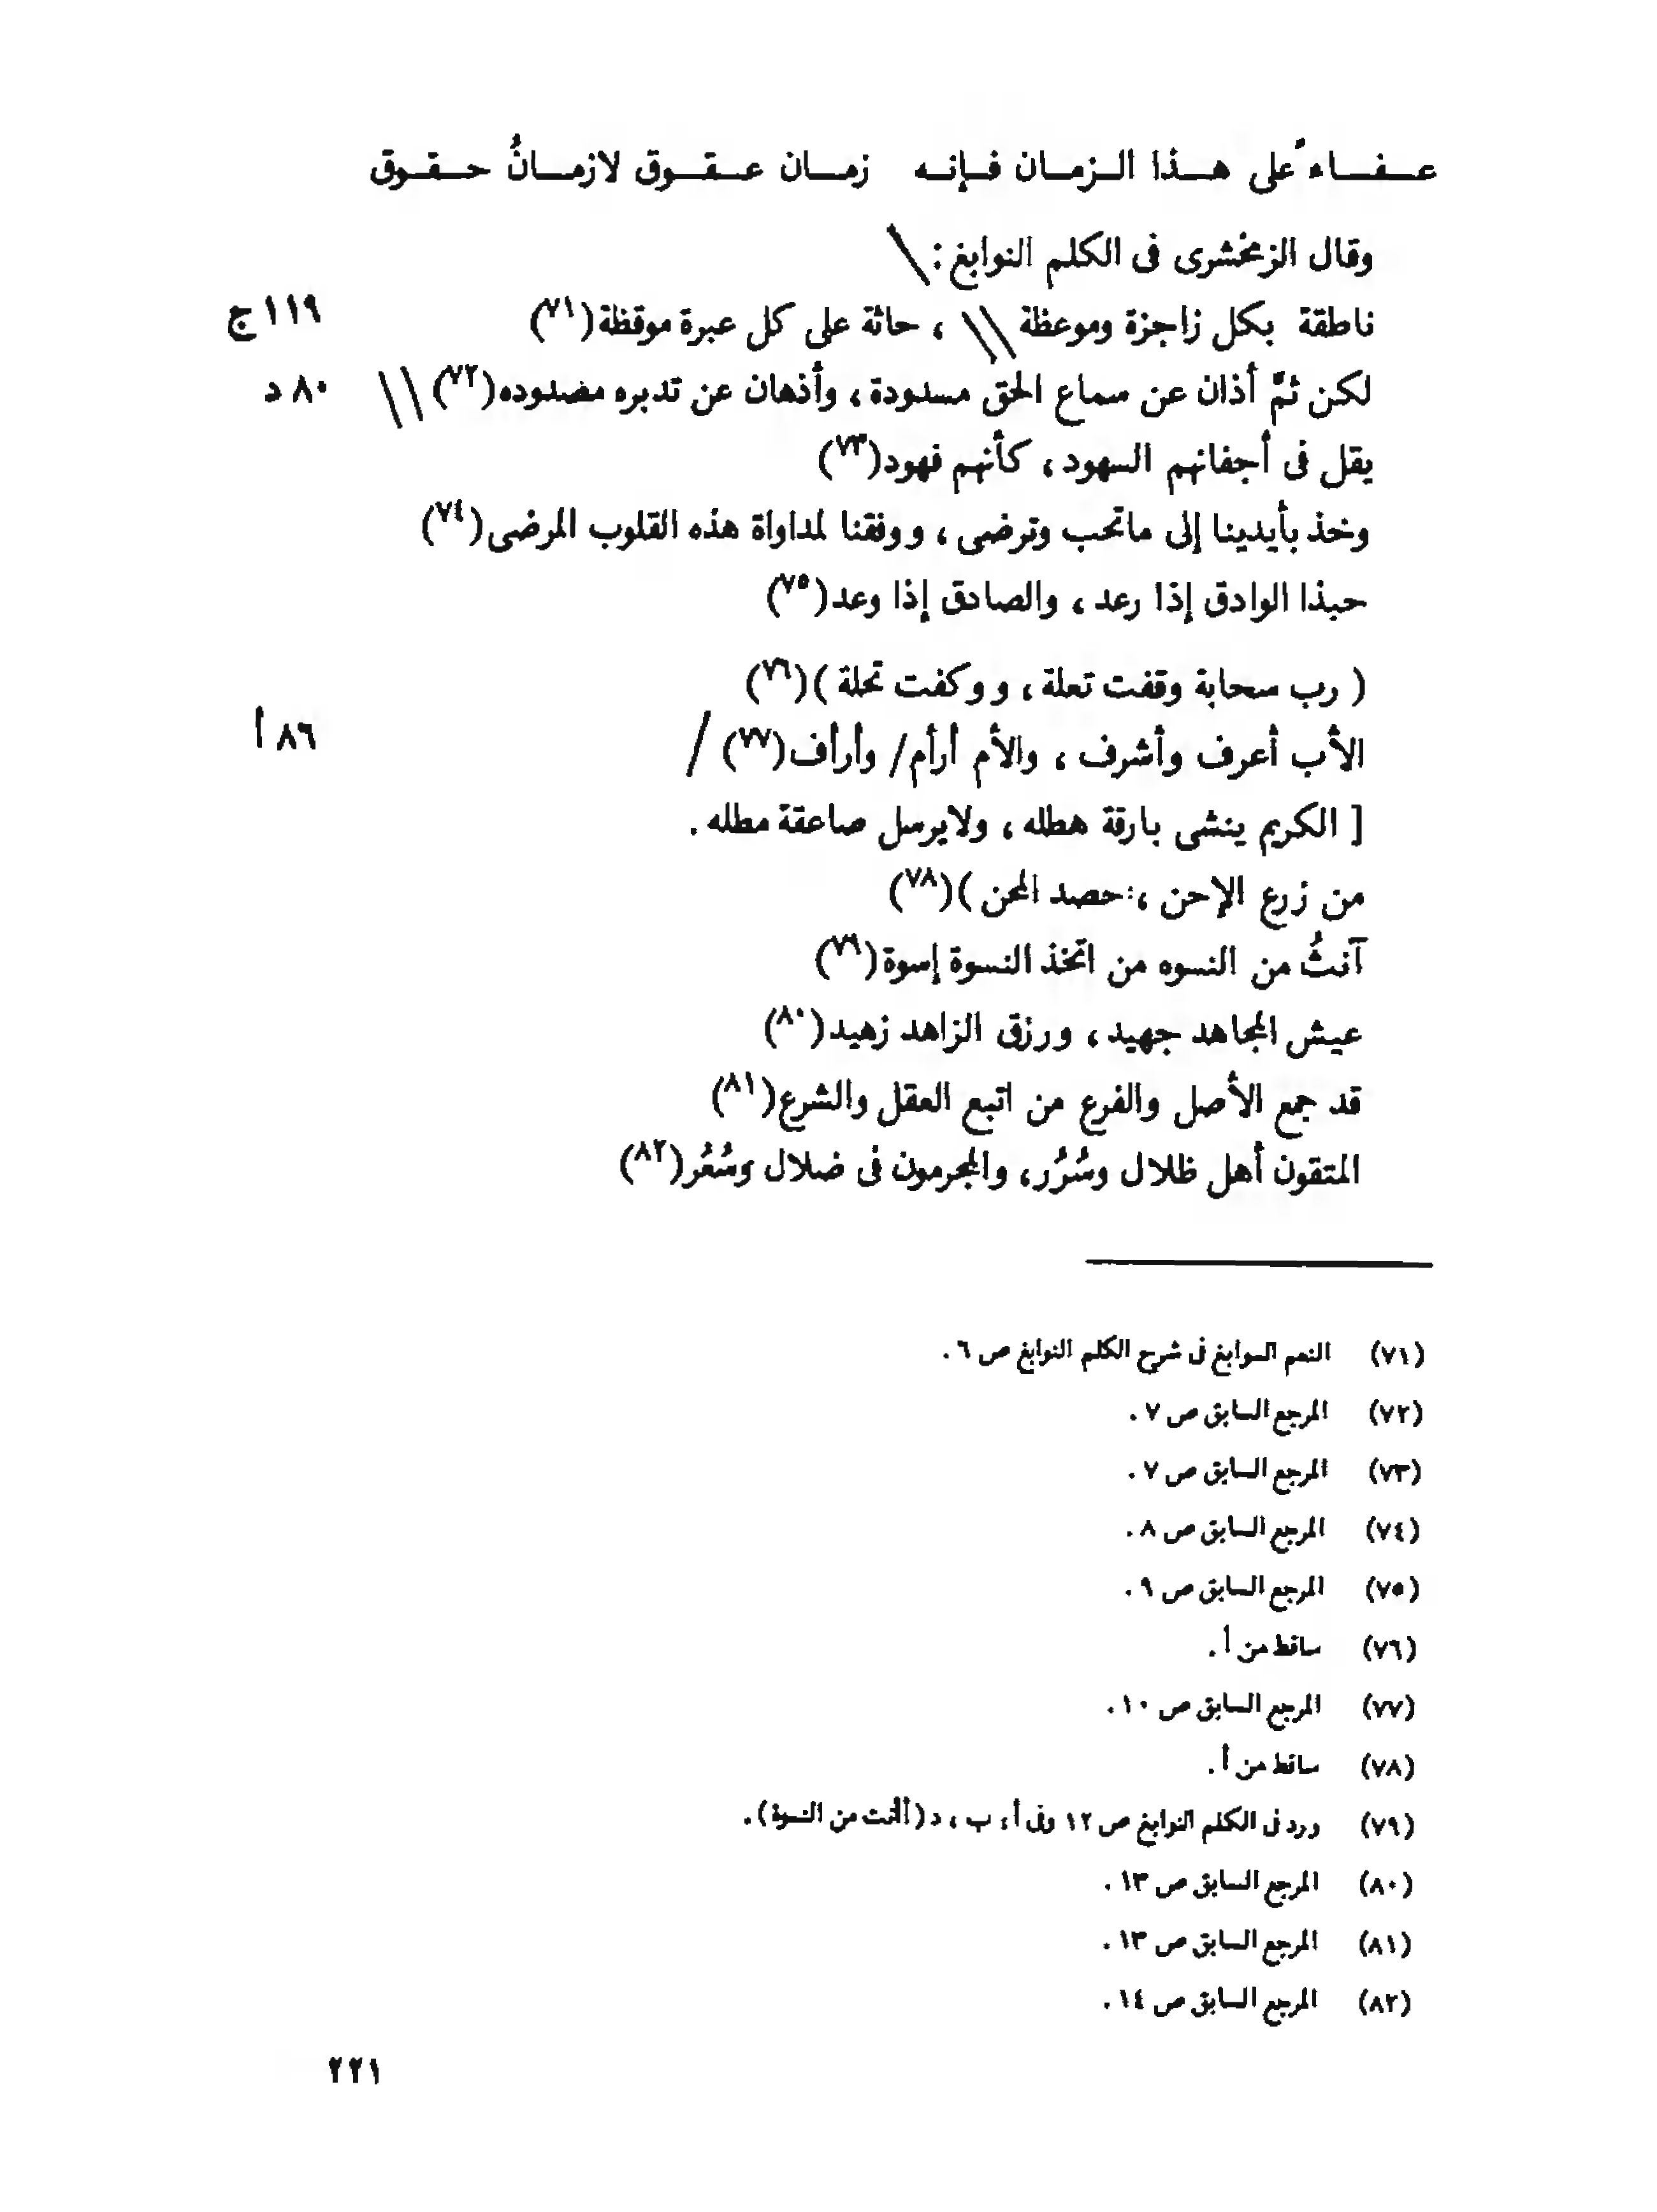 عفاءً على هذا الزمان فإنه زمان عقوق لازمانُ حقوق
وقال الزمخشرى فى الكلم النوابغ : \
ناطقة بكل زاجزة وموعظة \\ ، حاثة على كل عبرة موقظة (٧١) ١١٩ ج
لكن ثمَّ أذان عن سماع الحق مسدودة ، وأذهان عن تدبره مصدوده (٧٢) \\ ٨٠ د
يقل فى أجفانهم السهود ، كأنهم فهود (٧٣)
وخذ بأيدينا إلى ماتحب وترضى ، ووفقنا لمداواة هذه القلوب المرضى (٧٤)
حبذا الوادق إذا رعد ، والصادق إذا وعد (٧٥)
( رب سحابة وقفت تعلة ، ووكفت تحلة ) (٧٦)
الأب أعرف وأشرف ، والأم أرأم / وأرأف (٧٧) / ٨٦ أ
[ الكريم ينشى بارقة هطله ، ولايرسل صاعقة مطله .
من زرع الإحن ، حصد المحن ) (٧٨)
آنثُ من النسوه من اتخذ النسوة إسوة (٧٩)
عيش المجاهد جهيد ، ورزق الزاهد زهيد (٨٠)
قد جمع الأصل والفرع من اتبع العقل والشرع (٨١)
المتقون أهل ظلال وسُرُر ، والمجرمون فى ضلال وسُعُر (٨٢)
(٧١) النعم السوابغ فى شرح الكلم النوابغ ص ٦ .
(٧٢) المرجع السابق ص ٧ .
(٧٣) المرجع السابق ص ٧ .
(٧٤) المرجع السابق ص ٨ .
(٧٥) المرجع السابق ص ٩ .
(٧٦) ساقط من أ .
(٧٧) المرجع السابق ص ١٠ .
(٧٨) ساقط من أ .
(٧٩) ورد فى الكلم النوابغ ص ١٢ وفى أ ، ب ، د ( أأنت من النسوة ) .
(٨٠) المرجع السابق ص ١٣ .
(٨١) المرجع السابق ص ١٣ .
(٨٢) المرجع السابق ص ١٤ .
٢٢١